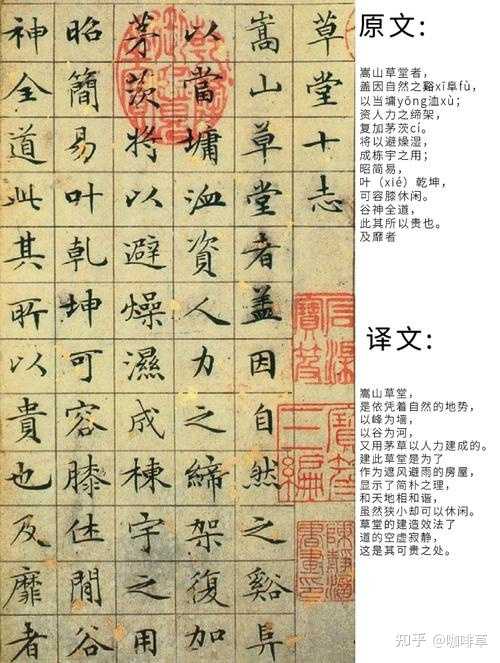 草堂十志
嵩山草堂者盖因自然之谿阜
以當墉洫資人力之締架復加
茅茨將以避燥濕成棟宇之用
昭簡易叶乾坤可容膝休閒谷
神全道此其所以貴也及靡者
石渠寶笈
寶笈三編
原文:
嵩山草堂者，
盖因自然之谿xī阜fù，
以当墉yōng洫xù；
资人力之缔架，
复加茅茨cí。
将以避燥湿，
成栋宇之用；
昭简易，
叶（xié）乾坤，
可容膝休闲。
谷神全道，
此其所以贵也。
及靡者
译文:
嵩山草堂，
是依凭着自然的地势，
以峰为墙，
以谷为河，
又用茅草以人力建成的。
建此草堂是为了
作为遮风避雨的房屋，
显示了简朴之理，
和天地相和谐，
虽然狭小却可以休闲。
草堂的建造效法了
道的空虚寂静，
这是其可贵之处。
知乎 @咖啡草